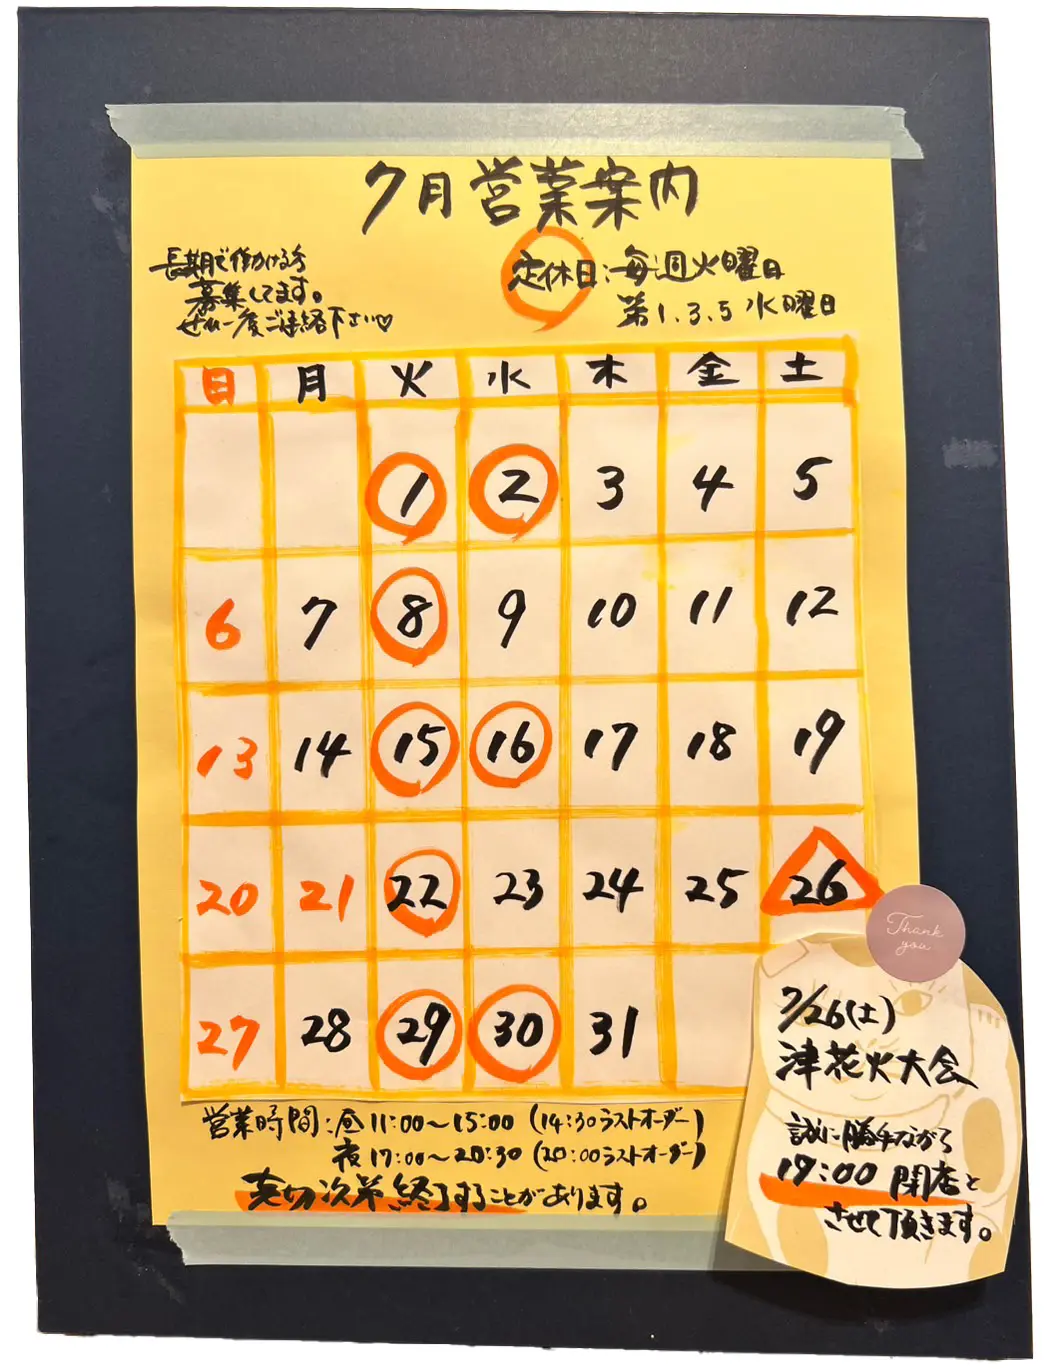 7月営業案内
長期で働ける方
募集してます。
ぜひ一度ご連絡下さい♡
定休日:毎週火曜日
第1.3.5水曜日
日 月 火 水 木 金 土
1 2 3 4 5
6 7 8 9 10 11 12
13 14 15 16 17 18 19
20 21 22 23 24 25 26
27 28 29 30 31
営業時間:昼11:00〜15:00(14:30ラストオーダー)
夜17:00〜20:30(20:00ラストオーダー)
売切次第終了することがあります。
Thank
you
7/26(土)
津花火大会
誠に勝手ながら
17:00閉店と
させて頂きます。